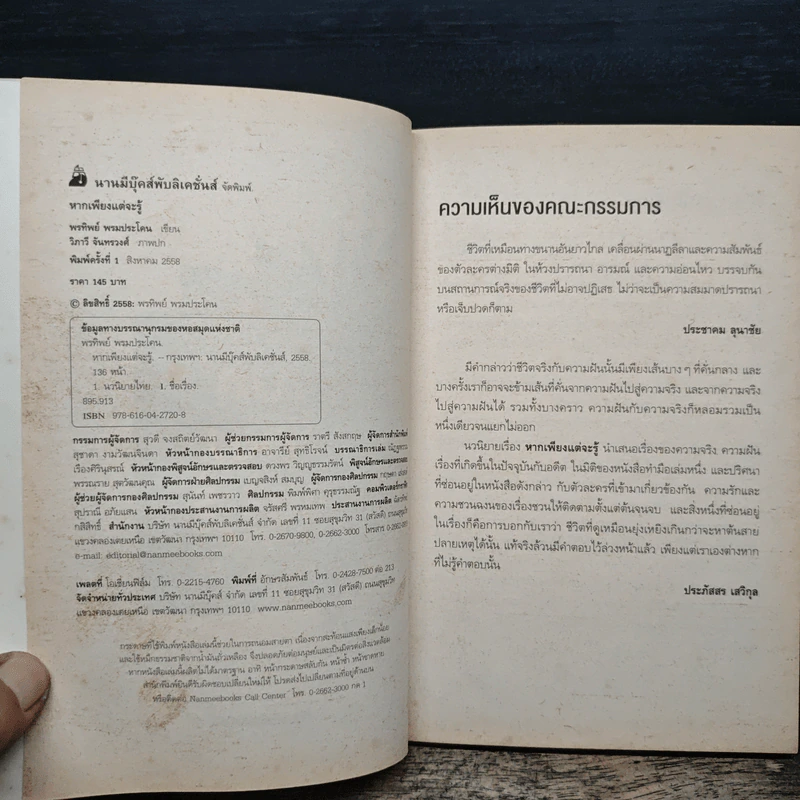 นานมีบุ๊คส์พับลิเคชั่นส์ จัดพิมพ์
หากเพียงแต่จะรู้
พรทิพย์ พรมประโคน เขียน
วิภาวี จันทรวงศ์ ภาพปก
พิมพ์ครั้งที่ 1 สิงหาคม 2558
ราคา 145 บาท
© ลิขสิทธิ์ 2558: พรทิพย์ พรมประโคน
ข้อมูลทางบรรณานุกรมของหอสมุดแห่งชาติ
พรทิพย์ พรมประโคน.
หากเพียงแต่จะรู้. – กรุงเทพฯ: นานมีบุ๊คส์พับลิเคชั่นส์, 2558.
136 หน้า
1. นวนิยายไทย. I. ชื่อเรื่อง.
895.913
ISBN 978-616-04-2720-8
กรรมการผู้จัดการ สุวดี จงสถิตย์วัฒนา ผู้ช่วยกรรมการผู้จัดการ ราตรี สังสกฤษ ผู้จัดการสำนักพิมพ์
สุชาดา งามวัฒนจินดา หัวหน้ากองบรรณาธิการ อาจารีย์ สุทธิโรจน์ บรรณาธิการเล่ม
เรืองศิรินุสรณ์ หัวหน้ากองพิสูจน์อักษรและตรวจสอบ ดวงพร วิญญูธรรมรัตน์ พิสูจน์อักษรและตรวจสอบ
พรรณราย สุดวัฒนคุณ ผู้จัดการฝ่ายศิลปกรรม เบญจสิงห์ สมบุญ ผู้จัดการกองศิลปกรรม
ผู้ช่วยผู้จัดการกองศิลปกรรม สุนันท์ เพชรวาว ศิลปกรรม พิมพ์พิศา คุรุธรรมณัฐ
สุปราณี อภัยแสน หัวหน้ากองประสานงานการผลิต จรัสศรี พรหมเทพ ประสานงานการผลิต
กสิสิทธิ์ สำนักงาน บริษัท นานมีบุ๊คส์พับลิเคชั่นส์ จำกัด เลขที่ 11 ซอยสุขุมวิท 31 (สวัสดี) ถนนสุขุมวิท
แขวงคลองเตยเหนือ เขตวัฒนา กรุงเทพฯ 10110 โทร. 0-2670-9800, 0-2662-3000 โทรสาร
e-mail: editorial@nanmeebooks.com
เพลตที่ โอเชียนฟิล์ม โทร. 0-2215-4760 พิมพ์ที่ อักษรสัมพันธ์ โทร. 0-2428-7500 ต่อ 213
จัดจำหน่ายทั่วประเทศ บริษัท นานมีบุ๊คส์ จำกัด เลขที่ 11 ซอยสุขุมวิท 31 (สวัสดี) ถนนสุขุมวิท
แขวงคลองเตยเหนือ เขตวัฒนา กรุงเทพฯ 10110 www.nanmeebooks.com
กระดาษที่ใช้พิมพ์หนังสือเล่มนี้ช่วยในการถนอมสายตา เนื่องจากสะท้อนแสงเพียงเล็กน้อย
และใช้หมึกธรรมชาติจากน้ำมันถั่วเหลือง จึงปลอดภัยต่อมนุษย์และเป็นมิตรต่อสิ่งแวดล้อม
หากหนังสือเล่มนี้ผลิตไม่ได้มาตรฐาน อาทิ หน้ากระดาษสลับกัน หน้าซ้ำ หน้าขาดหาย
สำนักพิมพ์ยินดีรับผิดชอบเปลี่ยนใหม่ให้ โปรดส่งไปเปลี่ยนตามที่อยู่ด้านบน
หรือติดต่อ Nanmeebooks Call Center โทร. 0-2662-3000 กด 1
ความเห็นของคณะกรรมการ
ชีวิตที่เหมือนทางขนานอันยาวไกล เคลื่อนผ่านนาฏลีลาและความสัมพันธ์
ของตัวละครต่างมิติ ในห้วงปรารถนา อารมณ์ และความอ่อนไหว บรรจบกัน
บนสถานการณ์จริงของชีวิตที่ไม่อาจปฏิเสธ ไม่ว่าจะเป็นความสมมาดปรารถนา
หรือเจ็บปวดก็ตาม
ประชาคม ลุนาชัย
มีคำกล่าวว่าชีวิตจริงกับความฝันนั้นมีเพียงเส้นบาง ๆ ที่คั่นกลาง และ
บางครั้งเราก็อาจจะข้ามเส้นที่คั่นจากความฝันไปสู่ความจริง และจากความจริง
ไปสู่ความฝันได้ รวมทั้งบางคราว ความฝันกับความจริงก็หลอมรวมเป็น
หนึ่งเดียวจนแยกไม่ออก
นวนิยายเรื่อง หากเพียงแต่จะรู้ นำเสนอเรื่องของความจริง ความฝัน
เรื่องที่เกิดขึ้นในปัจจุบันกับอดีต ในมิติของหนังสือทำมือเล่มหนึ่ง และปริศนา
ที่ซ่อนอยู่ในหนังสือดังกล่าว กับตัวละครที่เข้ามาเกี่ยวข้องกัน ความรักและ
ความชวนฉงนของเรื่องชวนให้ติดตามตั้งแต่ต้นจนจบ และสิ่งหนึ่งที่ซ่อนอยู่
ในเรื่องก็คือการบอกกับเราว่า ชีวิตที่ดูเหมือนยุ่งเหยิงเกินกว่าจะหาต้นสาย
ปลายเหตุได้นั้น แท้จริงล้วนมีคำตอบไว้ล่วงหน้าแล้ว เพียงแต่เราเองต่างหาก
ที่ไม่รู้คำตอบนั้น
ประภัสสร เสวิกุล